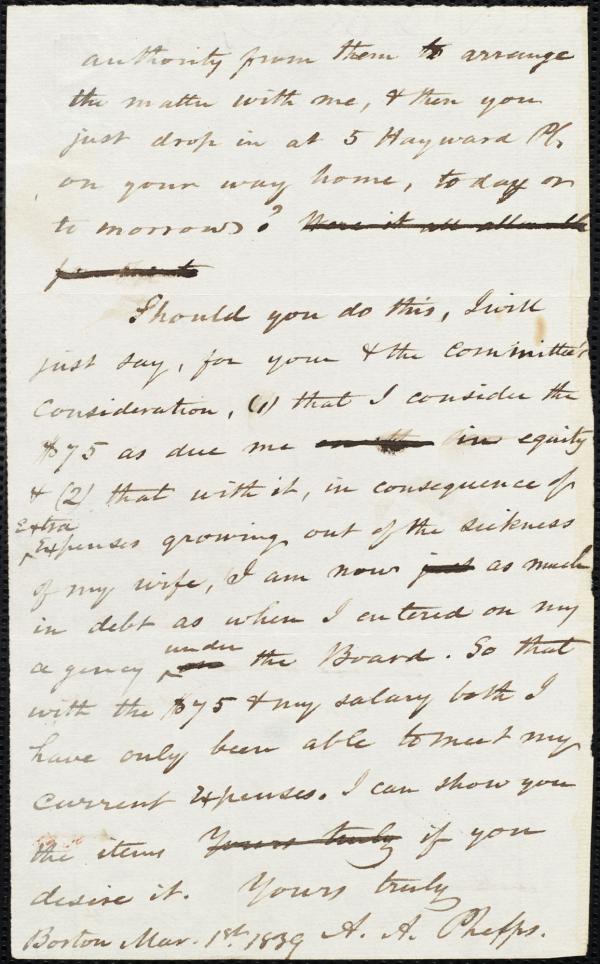 authority from them to arrange
the matter with me, & then you
just drop in at 5 Hayward Pl,
on your way home, to day or
to morrow?
Should you do this, I will
just say, for your & the committee's
consideration, (1) that I consider the
$75 as due me in equity
& (2) that with it, in consequence of
Extra
Expenses growing out of the sickness
of my wife, I am now just as much
in debt as when I entered on my
under
agency on the Board. So that
with the $75 & my salary both I
have only been able to meet my
current Expenses. I can show you
the items Yours truly if you
desire it. Yours truly
Boston Mar. 1st. 1839 A. A. Phelps.